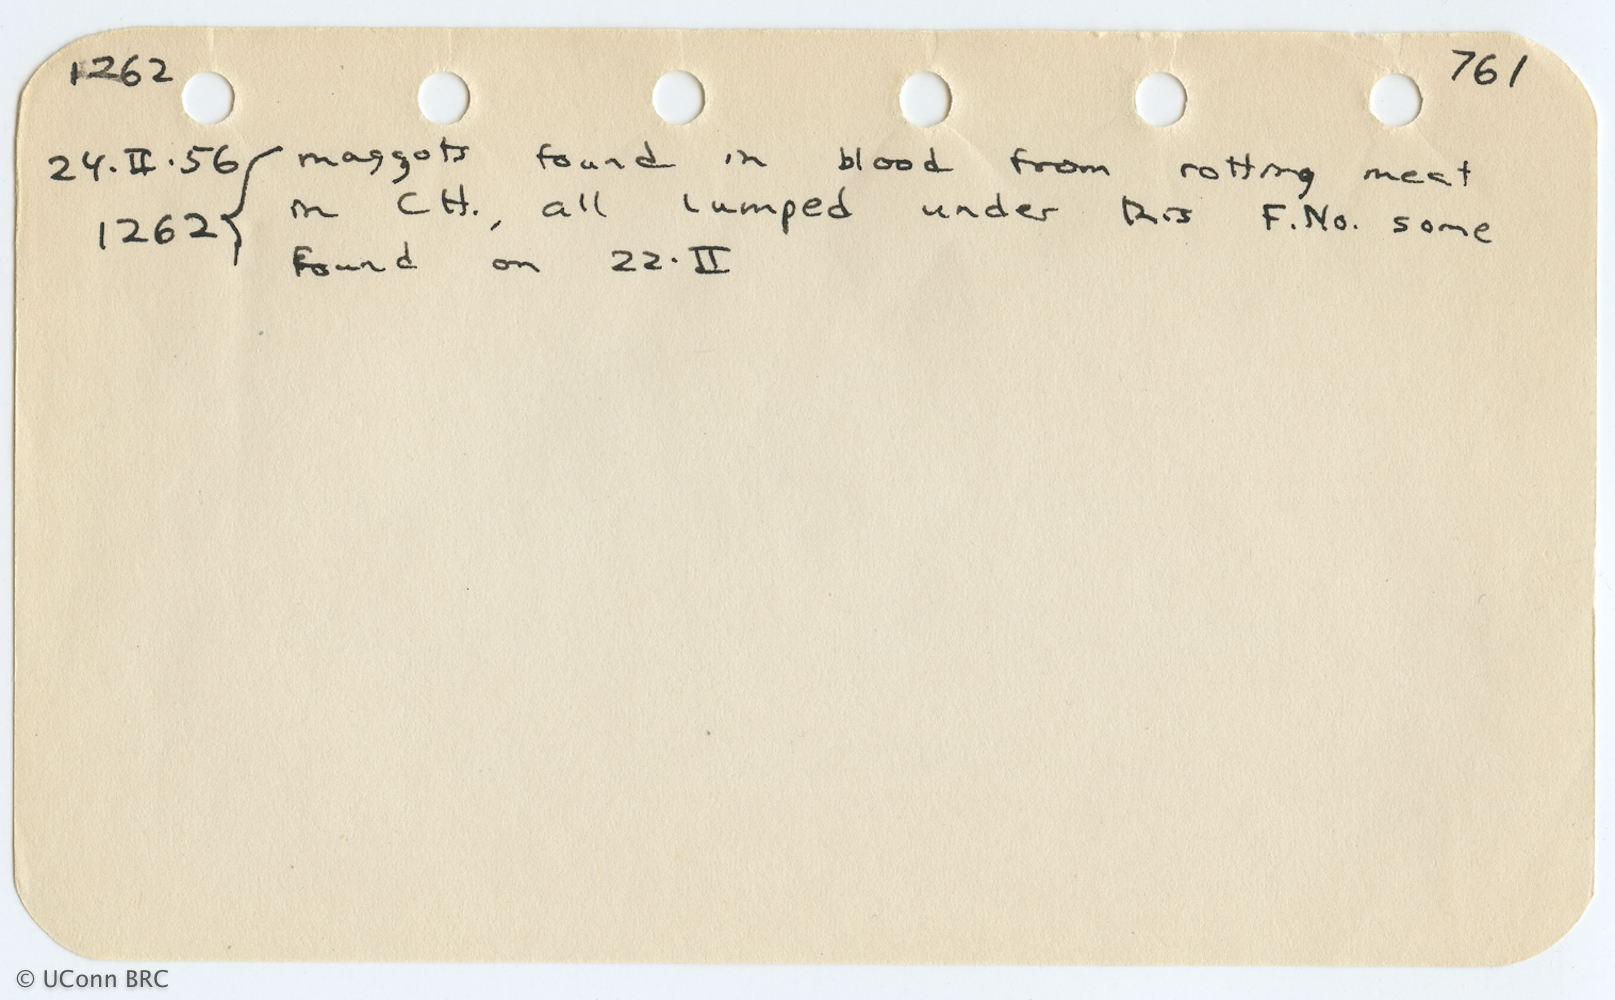 1262 761
24.II.56 maggots found in blood from rotting meat
1262 in CH., all lumped under this F.No. some
found on 22.II
© UConn BRC